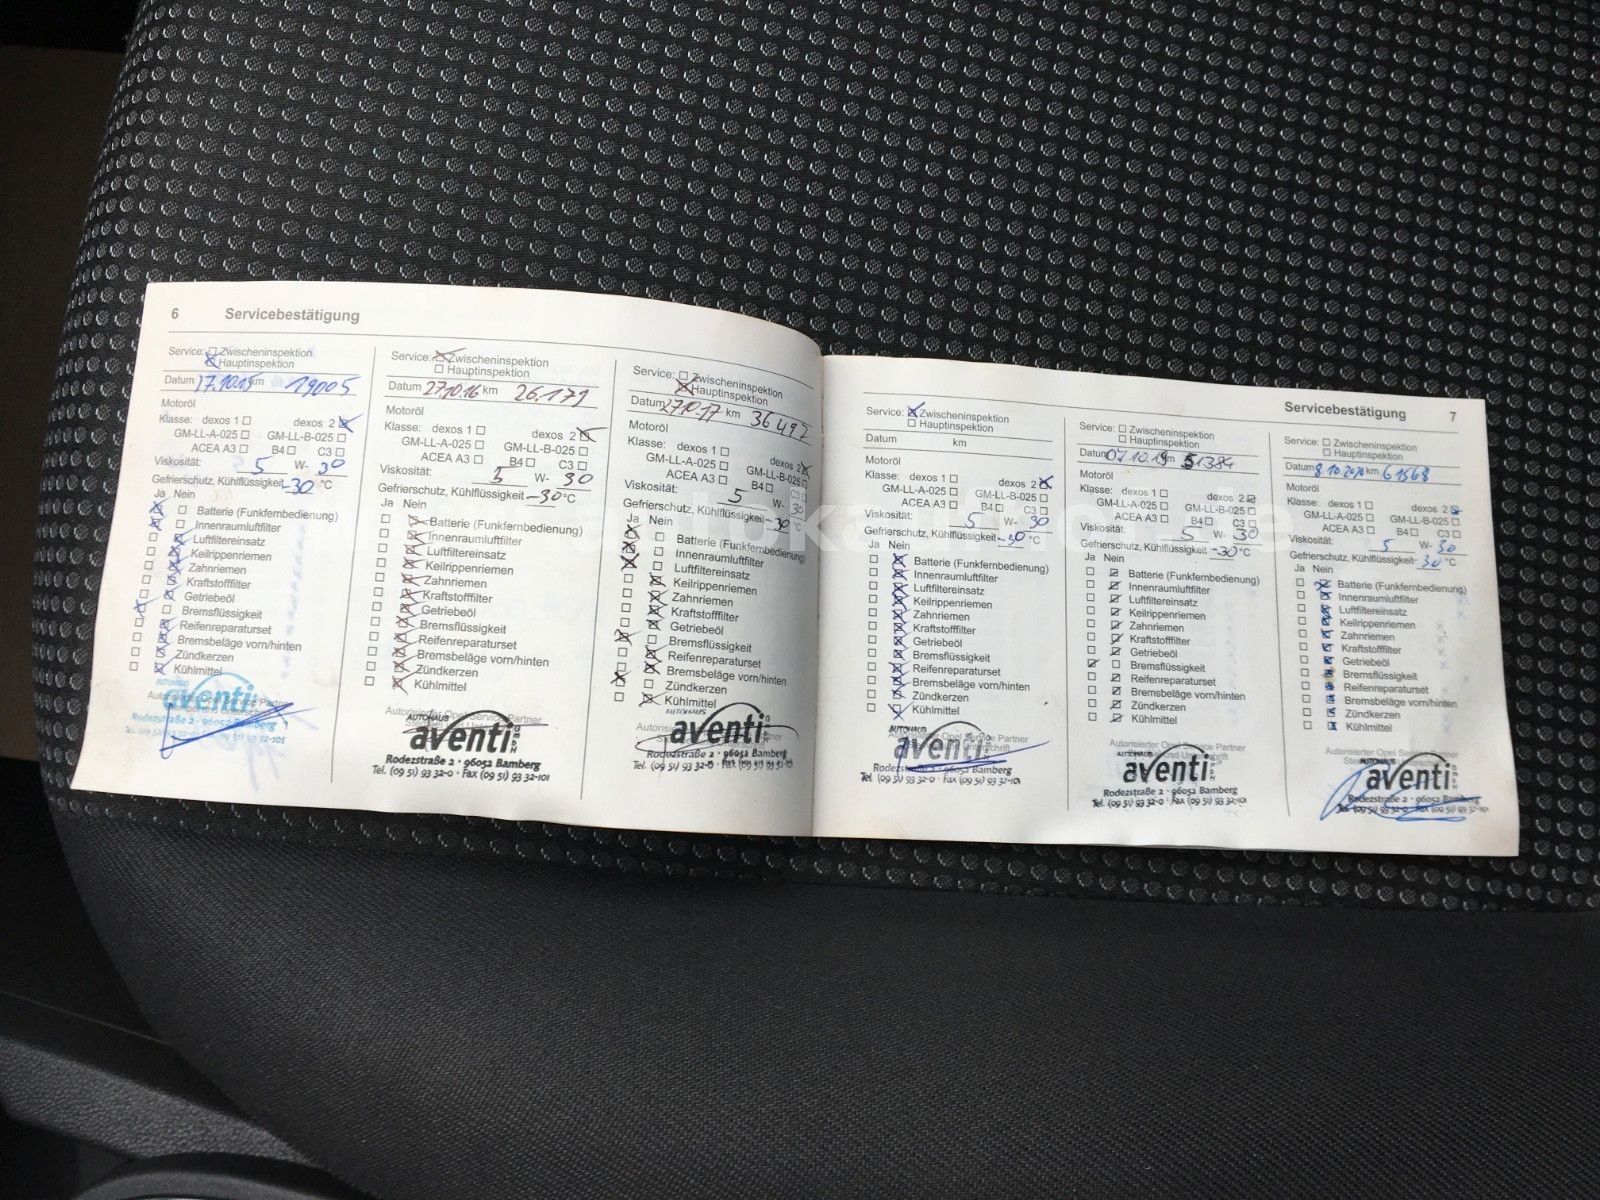 6 Servicebestätigung
Service: Zwischeninspektion
Hauptinspektion
Datum 17.10.15 km 19005
Motoröl
Klasse: dexos 1 dexos 2
GM-LL-A-025 GM-LL-B-025
ACEA A3 B4 C3
Viskosität: 5 W- 30
Gefrierschutz, Kühlflüssigkeit -30 °C
Ja Nein
Batterie (Funkfernbedienung)
Innenraumluftfilter
Luftfiltereinsatz
Keilrippenriemen
Zahnriemen
Kraftstofffilter
Getriebeöl
Bremsflüssigkeit
Reifenreparaturset
Bremsbeläge vorn/hinten
Zündkerzen
Kühlmittel
aventi
Rodezstraße 2 - 96052 Bamberg
Service: Zwischeninspektion
Hauptinspektion
Datum 27.10.16 km 26.179
Motoröl
Klasse: dexos 1 dexos 2
GM-LL-A-025 GM-LL-B-025
ACEA A3 B4 C3
Viskosität: 5 W- 30
Gefrierschutz, Kühlflüssigkeit -30 °C
Ja Nein
Batterie (Funkfernbedienung)
Innenraumluftfilter
Luftfiltereinsatz
Keilrippenriemen
Zahnriemen
Kraftstofffilter
Getriebeöl
Bremsflüssigkeit
Reifenreparaturset
Bremsbeläge vorn/hinten
Zündkerzen
Kühlmittel
Autorisierter Opel Service Partner
AUTOHAUS
aventi
GMBH
Rodezstraße 2 · 96052 Bamberg
Tel. (09 51) 93 32-0 · Fax (09 51) 93 32-101
Service: Zwischeninspektion
Hauptinspektion
Datum 27.10.17 km 36497
Motoröl
Klasse: dexos 1 dexos 2
GM-LL-A-025 GM-LL-B-025
ACEA A3 B4 C3
Viskosität: 5 W- 30
Gefrierschutz, Kühlflüssigkeit -30 °C
Ja Nein
Batterie (Funkfernbedienung)
Innenraumluftfilter
Luftfiltereinsatz
Keilrippenriemen
Zahnriemen
Kraftstofffilter
Getriebeöl
Bremsflüssigkeit
Reifenreparaturset
Bremsbeläge vorn/hinten
Zündkerzen
Kühlmittel
AUTOHAUS
aventi
GMBH
Rodezstraße 2 · 96052 Bamberg
Servicebestätigung 7
Service: Zwischeninspektion
Hauptinspektion
Datum km
Motoröl
Klasse: dexos 1 dexos 2
GM-LL-A-025 GM-LL-B-025
ACEA A3 B4 C3
Viskosität: 5 W- 30
Gefrierschutz, Kühlflüssigkeit -30 °C
Ja Nein
Batterie (Funkfernbedienung)
Innenraumluftfilter
Luftfiltereinsatz
Keilrippenriemen
Zahnriemen
Kraftstofffilter
Getriebeöl
Bremsflüssigkeit
Reifenreparaturset
Bremsbeläge vorn/hinten
Zündkerzen
Kühlmittel
AUTOHAUS
aventi
GMBH
Rodezstraße 2 · 96052 Bamberg
Tel. (09 51) 93 32-0 · Fax (09 51) 93 32-101
Service: Zwischeninspektion
Hauptinspektion
Datum 07.10.19 km 51384
Motoröl
Klasse: dexos 1 dexos 2
GM-LL-A-025 GM-LL-B-025
ACEA A3 B4 C3
Viskosität: 5 W- 30
Gefrierschutz, Kühlflüssigkeit -30 °C
Ja Nein
Batterie (Funkfernbedienung)
Innenraumluftfilter
Luftfiltereinsatz
Keilrippenriemen
Zahnriemen
Kraftstofffilter
Getriebeöl
Bremsflüssigkeit
Reifenreparaturset
Bremsbeläge vorn/hinten
Zündkerzen
Kühlmittel
Autorisierter Opel Service Partner
AUTOHAUS
aventi
GMBH
Rodezstraße 2 · 96052 Bamberg
Tel. (09 51) 93 32-0 · Fax (09 51) 93 32-101
Service: Zwischeninspektion
Hauptinspektion
Datum 8.10.2020 km 61568
Motoröl
Klasse: dexos 1 dexos 2
GM-LL-A-025 GM-LL-B-025
ACEA A3 B4 C3
Viskosität: 5 W- 30
Gefrierschutz, Kühlflüssigkeit -30 °C
Ja Nein
Batterie (Funkfernbedienung)
Innenraumluftfilter
Luftfiltereinsatz
Keilrippenriemen
Zahnriemen
Kraftstofffilter
Getriebeöl
Bremsflüssigkeit
Reifenreparaturset
Bremsbeläge vorn/hinten
Zündkerzen
Kühlmittel
Autorisierter Opel Service Partner
AUTOHAUS
aventi
GMBH
Rodezstraße 2 · 96052 Bamberg
Tel. (09 51) 93 32-0 · Fax (09 51) 93 32-101